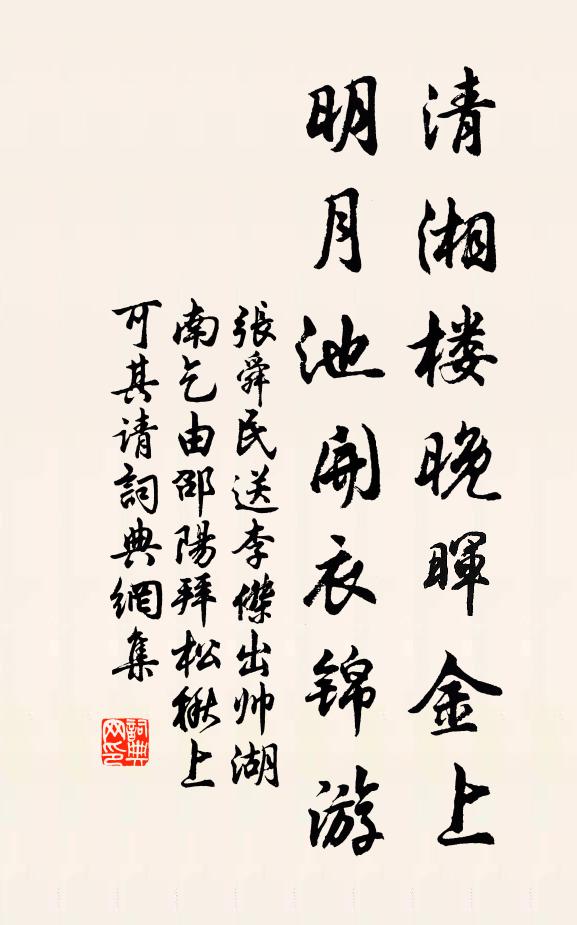 清湘楼晚暉金上
明月池開衣錦游
張舜民送李傑出帅湖
南乞由邵陽拜松楸上
可其请詞典網集
詞典網印